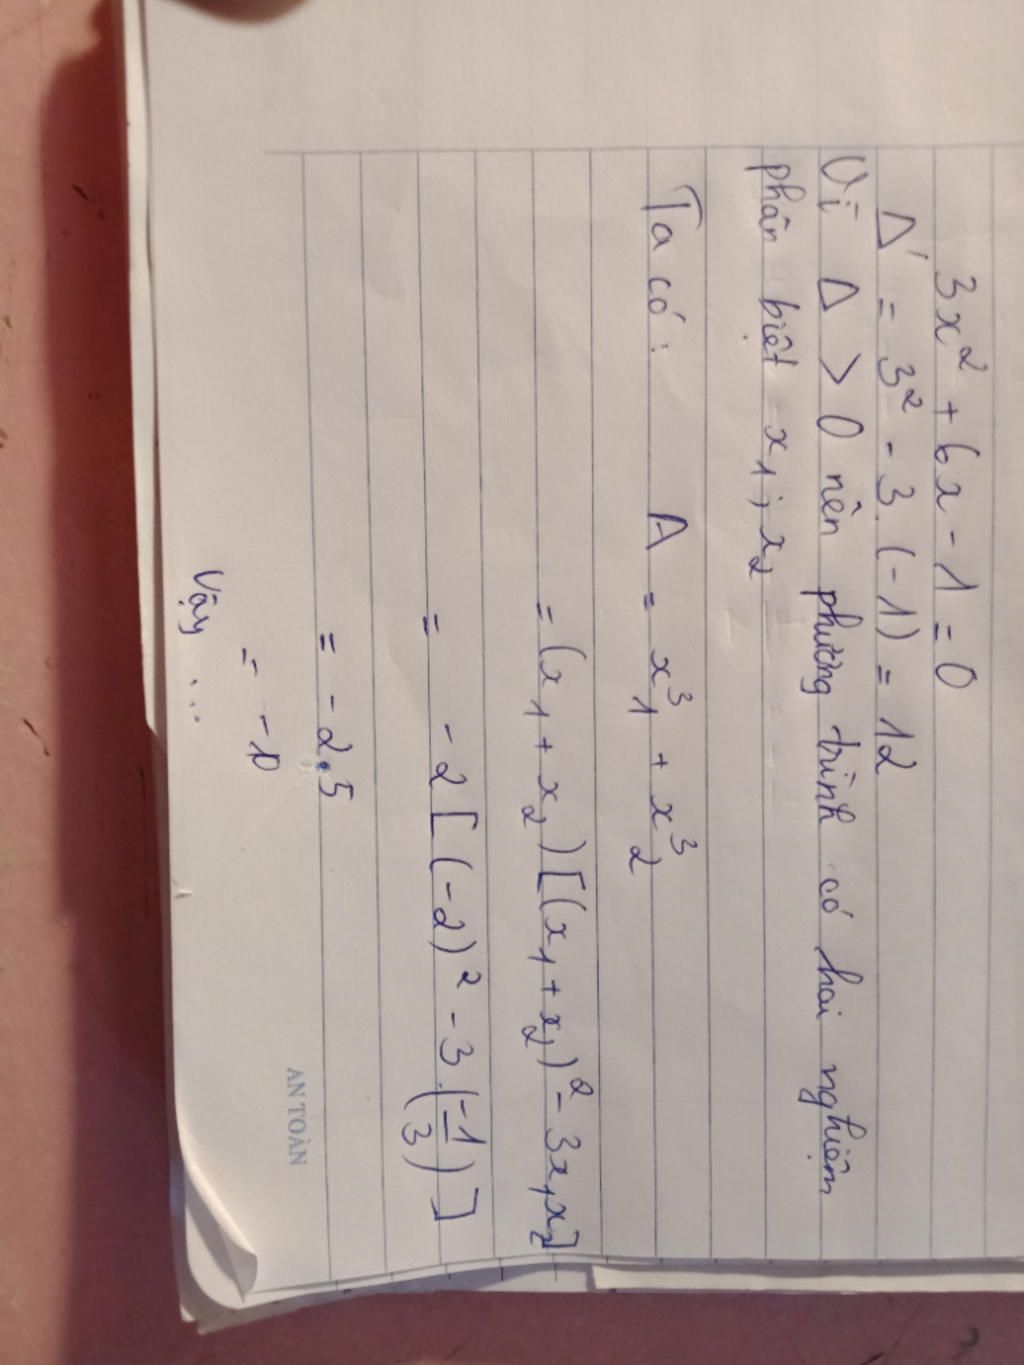 3x² + 6x - 1 = 0
Δ' = 3² - 3.(-1) = 12
Vì Δ > 0 nên phương trình có hai nghiệm
phân biệt x₁; x₂
Ta có: A = x₁³ + x₂³
= (x₁ + x₂)[(x₁ + x₂)² - 3x₁x₂]
= -2[(-2)² - 3.(-1/3)]
= -2.5
= -10
Vậy ...
AN TOÀN